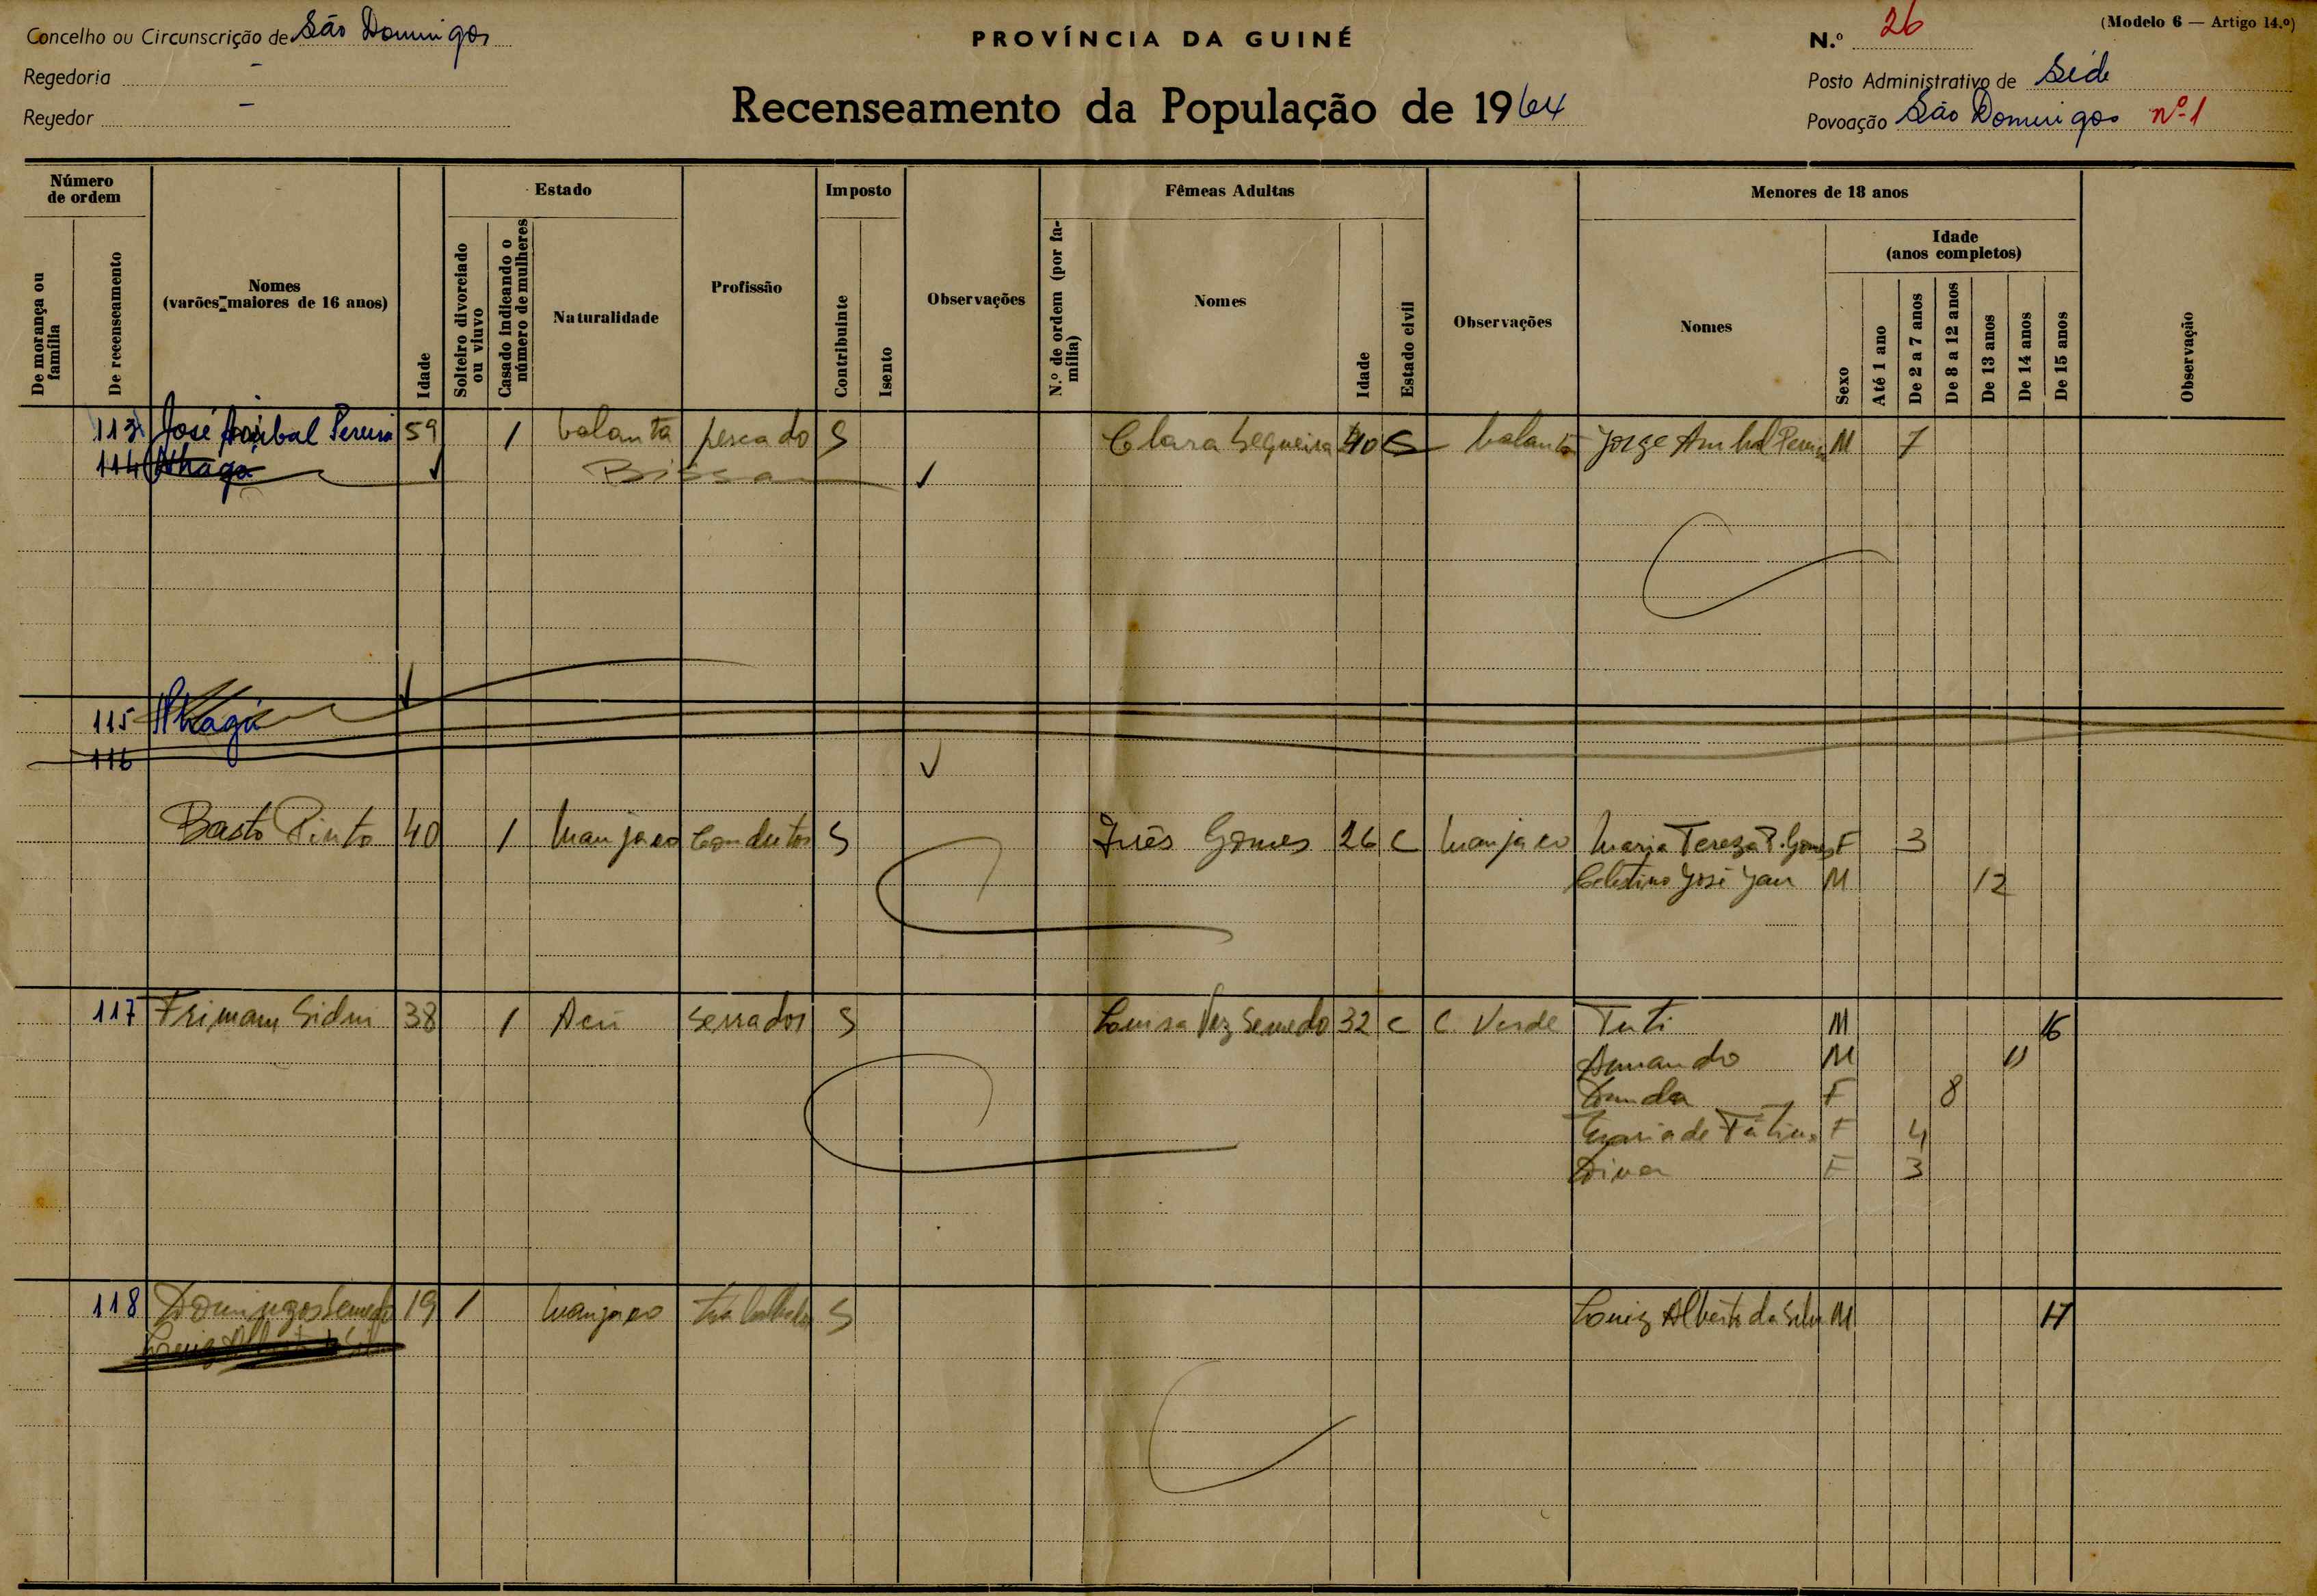 Concelho ou Circunscrição de São Domingos
PROVÍNCIA DA GUINÉ
N.º 26
(Modelo 6 — Artigo 14.º)
Regedoria -
Posto Administrativo de Séde
Regedor -
Recenseamento da População de 1964
Povoação São Domingos nº 1
Número de ordem
Estado
Imposto
Fêmeas Adultas
Menores de 18 anos
De morança ou família
De recenseamento
Nomes (varões maiores de 16 anos)
Idade
Solteiro divorciado ou viuvo
Casado indicando o número de mulheres
Naturalidade
Profissão
Contribuinte
Isento
Observações
N.º de ordem (por família)
Nomes
Idade
Estado civil
Observações
Nomes
Sexo
Idade (anos completos)
Até 1 ano
De 2 a 7 anos
De 8 a 12 anos
De 13 anos
De 14 anos
De 15 anos
Observação
113 José Anibal Pereira 59 1 balanta pescado S Clara Sequeira 40 balanta Jorge Anibal Pereira M 7
114 Bissau
115
116
Basto Pinto 40 1 Manjaco Condutor S Inês Gomes 26 C Manjaco Maria Tereza P. Gomes F 3
Celestino José M 12
117 38 1 serrador S Semedo 32 C C Verde Tuti M 16
Armando M 11
F 8
Maria de Fátima F 4
Dina F 3
118 Domingos Semedo 19 1 Manjaco trabalhador S Louiz Alberto da Silva M 17
Louiz Alberto da Silva